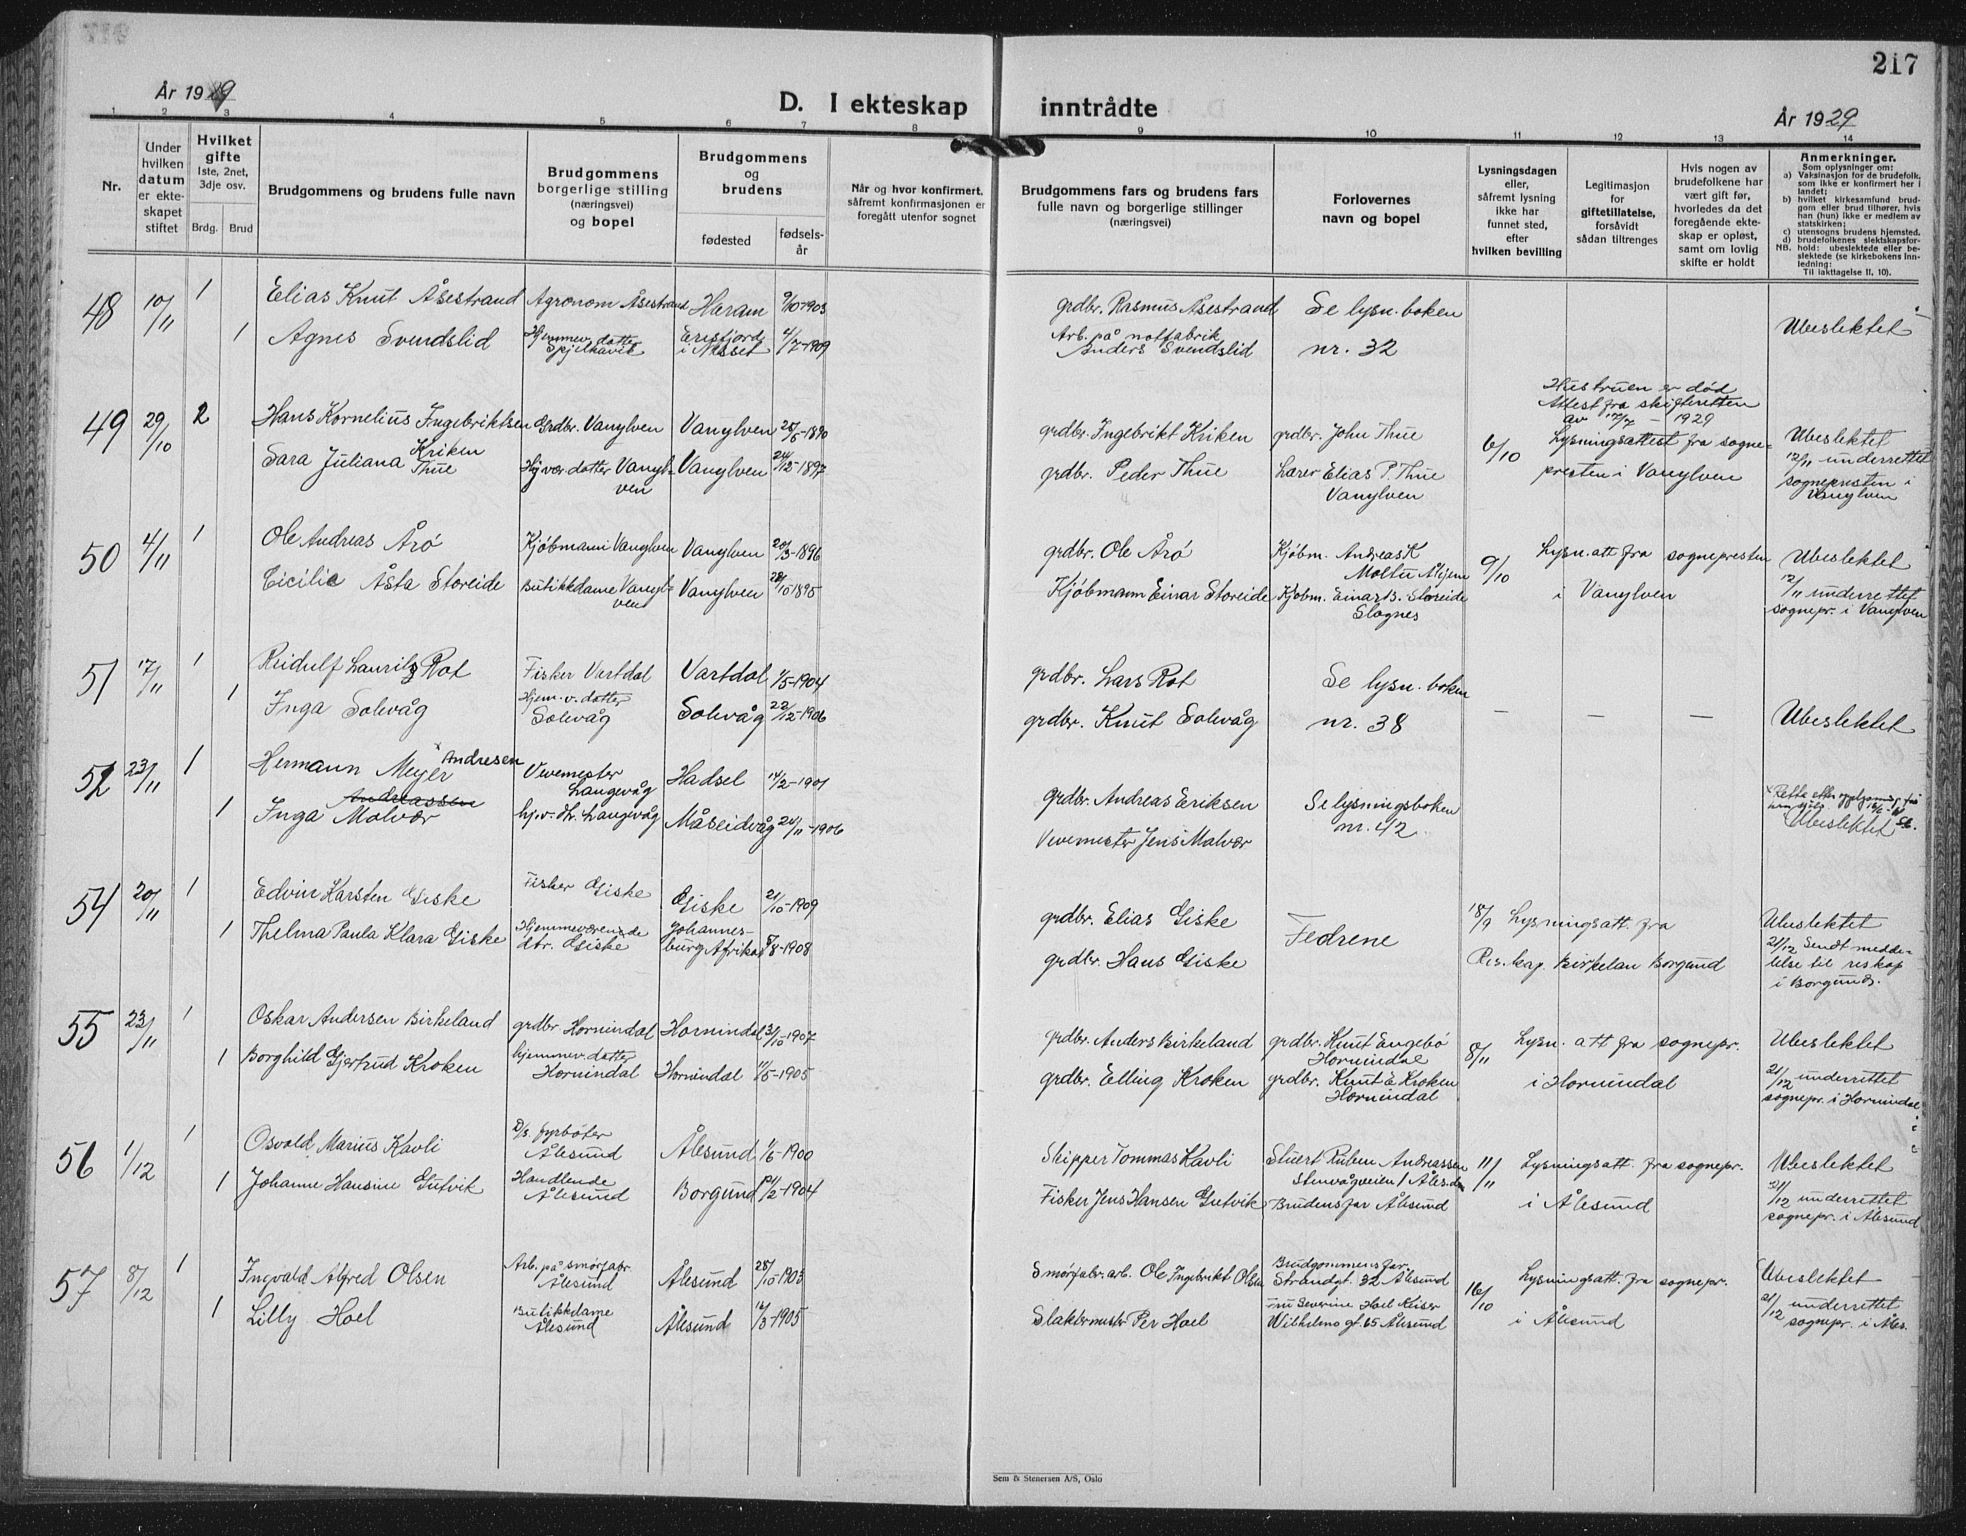 217
År 1929
D. I ekteskap inntrådte
År 1929
1 2 3 4 5 6 7 8 9 10 11 12 13 14
Nr.
Under hvilken datum er ekteskapet stiftet
Hvilket gifte
1ste, 2net, 3dje osv.
Brdg. Brud
Brudgommens og brudens fulle navn
Brudgommens borgerlige stilling
(næringsvei)
og bopel
Brudgommens og brudens
fødested
fødselsår
Når og hvor konfirmert,
såfremt konfirmasjonen er
foregått utenfor sognet
Brudgommens fars og brudens fars
fulle navn og borgerlige stillinger
(næringsvei)
Forlovernes
navn og bopel
Lysningsdagen
eller,
såfremt lysning
ikke har
funnet sted,
efter
hvilken bevilling
Legitimasjon
for
giftetillatelse,
forsåvidt
sådan tiltrenges
Hvis nogen av
brudefolkene har
vært gift før,
hvorledes da det
foregående ekte-
skap er opløst,
samt om lovlig
skifte er holdt
Anmerkninger.
Som oplysninger om:
a) Vaksinasjon for de brudefolk,
som ikke er konfirmert her i
landet;
b) hvilket kirkesamfund brud-
gom eller brud tilhører, hvis
han (hun) ikke er medlem av
statskirken;
c) utensogns brudens hjemsted.
d) brudefolkenes slektskapsfor-
NB. hold: ubeslektede eller be-
slektede (se kirkebokens Inn-
ledning:
Til iakttagelse II, 10).
48 10/11 1 Elias Knut Åsestrand Agronom Åsestrand Haram 9/10-1903 grdbr. Rasmus Åsestrand Se lysn. boken
1 Agnes Svendslid Hjemmev. datter Spjelkavik Eresfjord i Nesset 4/7-1909 Arb. på notfabrik Anders Svendslid nr. 32 Ubeslektet
49 29/10 2 Hans Kornelius Ingebriktsen Kriken Grdbr. Vanylven Vanylven 25/5-1890 grdbr. Ingebrikt Kriken grdbr. John Thue 6/10 Hustruen er død
Attest fra skifteretten
av 17/7 - 1929
Lysningsattest fra sogne-
presten i Vanylven
Ubeslektet
12/11 underrettet
sognepresten i
Vanylven
Sara Juliana Thue Hjvær. datter Vanylven Vanylven 24/12-1897 grdbr. Peder Thue Lærer Elias P. Thue
Vanylven
50 4/11 1 Ole Andreas Årö Kjöbmann Vanylven Vanylven 20/3-1896 grdbr. Ole Årö Kjöbm. Andreas K 9/10 Lysn. att fra sognepresten Ubeslektet
Cicilie Åsta Storeide Butikkdame Vanylven Vanylven 28/10-1895 Kjöbmann Einar Storeide Kjöbm. Einar B. Storeide
Slagnes i Vanylven 12/11 underrettet
sognepr. i Vanylven
51 17/11 1 Reidulf Lauritz Rot Fisker Vartdal Vartdal 1/5-1904 grdbr. Lars Rot Se lysn. boken
1 Inga Solevåg Hjem. v. datter Solevåg Solevåg 22/12-1906 grdbr. Knut Solevåg nr. 38 — — — Ubeslektet
52 23/11 1 Hermann Meyer Andreassen x Andresen Vevemester Langevåg Hadsel 14/2-1901 grdbr. Andreas Eriksen Se lysningsboken
1 Inga Malvær hj.v. dtr. Langevåg Måseidvåg 24/11-1906 Vevemester Jens Malvær nr. 42 Ubeslektet
54 20/11 1 Edvin Karsten Giske Fisker Giske Giske 21/10-1909 grdbr. Elias Giske Fedrene 18/9 Lysningsatt. fra Ubeslektet
1 Thelma Paula Klara Giske Hjemmeværende dtr. Giske Johannes-
burg Afrika 5/8-1908 grdbr. Hans Giske Res. kap. Birkelan Borgund 21/12 Sendt medde-
lelse til reskap
i Borgund.
55 23/11 1 Oskar Andersen Birkeland grdbr Hornindal Hornindal 3/10-1907 grdbr. Anders Birkeland grdbr. Knut Engebö
Hornindal 8/11 Lysn. att fra sognepr. Ubeslektet
1 Borghild Gjertrud Kroken hjemmev. datter
Hornindal Hornindal 11/5-1905 grdbr. Elling Kroken grdbr. Knut E Kroken
Hornindal i Hornindal 21/12 underrettet
sognepr. i Hornindal
56 1/12 1 Osvald Marius Kavli D/s. fyrböter
Ålesund Ålesund 1/6-1900 Skipper Tommas Kavli Stuert Ruben Andreassen 11/11 Lysningsatt. fra sognepr. Ubeslektet
1 Johanne Hansine Gutvik Handlende
Ålesund Borgund 2-1904 Fisker Jens Hansen Gutvik Brudens far Ålesund i Ålesund 21/12 underrettet
sognepr. i Ålesund
57 8/12 1 Ingvald Alfred Olsen Arb. på smörfabr.
Ålesund Ålesund 28/10-1903 Smörfabr. arb. Ole Ingebrikt Olsen Brudgommens far
Strandgt. 32 Ålesund 16/10 Lysningsatt. fra sognepr. Ubeslektet
1 Lilly Hoel Butikkdame
Ålesund Ålesund 12/3-1905 Slaktermester Per Hoel fru Severine Hoel Keiser
Wilhelms gt. 65 Ålesund i Ålesund 21/12 underrettet
sognepr. i Åles.
Sem & Stenersen A/S, Oslo